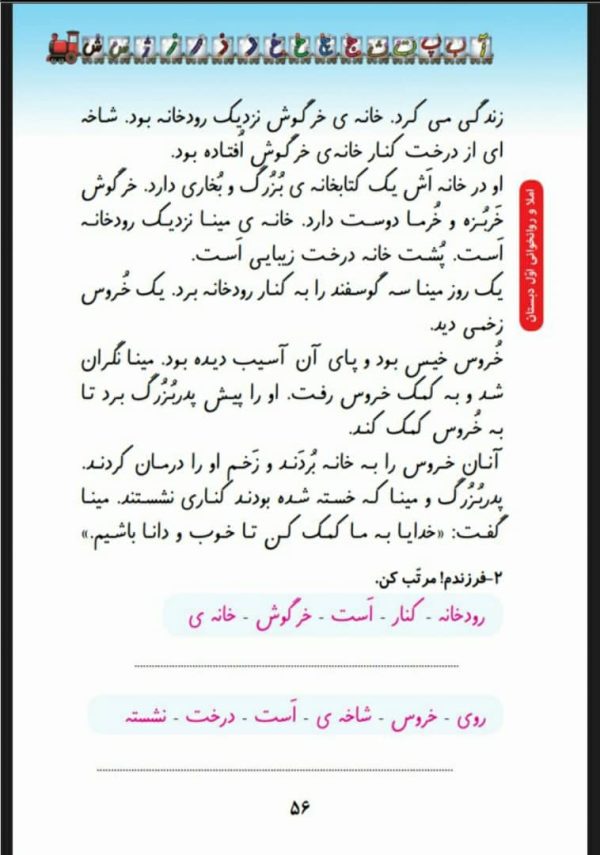 آ ب پ ت ث ج چ ح خ د ذ ر ز ژ س ش
زندگی می کرد. خانه ی خرگوش نزدیک رودخانه بود. شاخه
ای از درخت کنار خانه‌ی خرگوش اُفتاده بود.
او در خانه اَش یک کتابخانه ی بُزُرگ و بُخاری دارد. خرگوش
خَربُزه و خُرما دوست دارد. خانه ی مینا نزدیک رودخانه
اَست. پُشت خانه درخت زیبایی اَست.
یک روز مینا سه گوسفند را به کنار رودخانه برد. یک خُروس
زخمی دید.
خُروس خیس بود و پای آن آسیب دیده بود. مینا نگران
شد و به کمک خروس رفت. او را پیش پدربُزُرگ برد تا
به خُروس کمک کند.
آنان خروس را به خانه بُردَند و زَخم او را درمان کردند.
پدربُزُرگ و مینا که خسته شده بودند کناری نشستند. مینا
گفت: «خدایا به ما کمک کن تا خوب و دانا باشیم.»
۲-فرزندم! مرتّب کن.
رودخانه - کنار - اَست - خرگوش - خانه ی
روی - خروس - شاخه ی - اَست - درخت - نشسته
۵۶
املا و روانخوانی اول دبستان